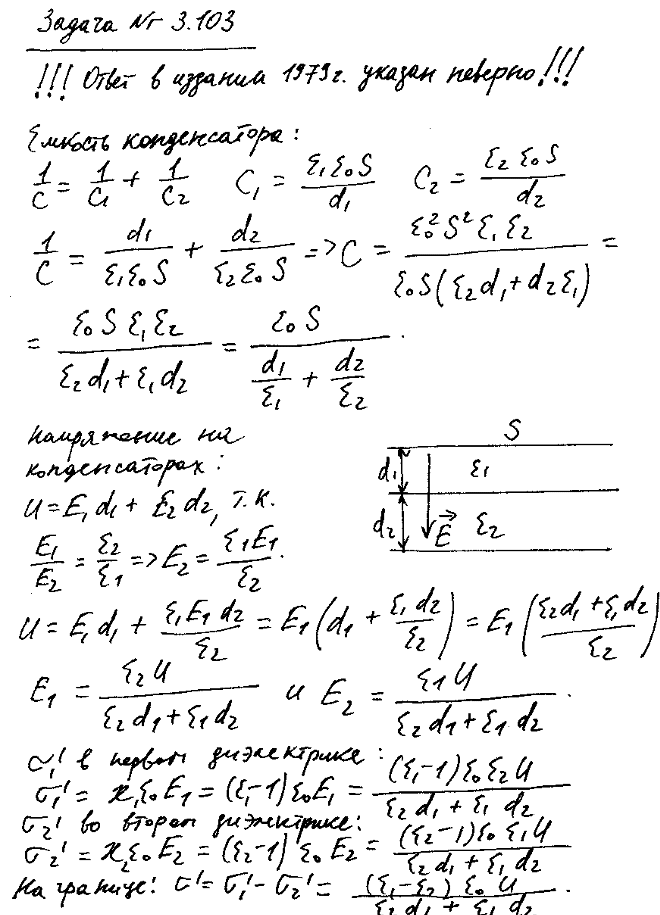 Задача № 3.103
!!! Ответ в издании 1979г. указан неверно!!!
Ёмкость конденсатора:
1/C = 1/C₁ + 1/C₂   C₁ = ε₁ε₀S/d₁   C₂ = ε₂ε₀S/d₂
1/C = d₁/(ε₁ε₀S) + d₂/(ε₂ε₀S) => C = ε₀²S²ε₁ε₂/(ε₀S(ε₂d₁+d₂ε₁)) =
= ε₀Sε₁ε₂/(ε₂d₁+ε₁d₂) = ε₀S/(d₁/ε₁ + d₂/ε₂).
Напряжение на
конденсаторах:
U = E₁d₁ + E₂d₂, т.к.
E₁/E₂ = ε₂/ε₁ => E₂ = ε₁E₁/ε₂.
S
d₁ ε₁
d₂ E⃗ ε₂
U = E₁d₁ + ε₁E₁d₂/ε₂ = E₁(d₁ + ε₁d₂/ε₂) = E₁((ε₂d₁+ε₁d₂)/ε₂)
E₁ = ε₂U/(ε₂d₁+ε₁d₂) и E₂ = ε₁U/(ε₂d₁+ε₁d₂).
σ₁' в первом диэлектрике:
σ₁' = ϰ₁ε₀E₁ = (ε₁-1)ε₀E₁ = (ε₁-1)ε₀ε₂U/(ε₂d₁+ε₁d₂)
σ₂' во втором диэлектрике:
σ₂' = ϰ₂ε₀E₂ = (ε₂-1)ε₀E₂ = (ε₂-1)ε₀ε₁U/(ε₂d₁+ε₁d₂)
На границе: σ' = σ₁' - σ₂' = (ε₁-ε₂)ε₀U/(ε₂d₁+ε₁d₂).